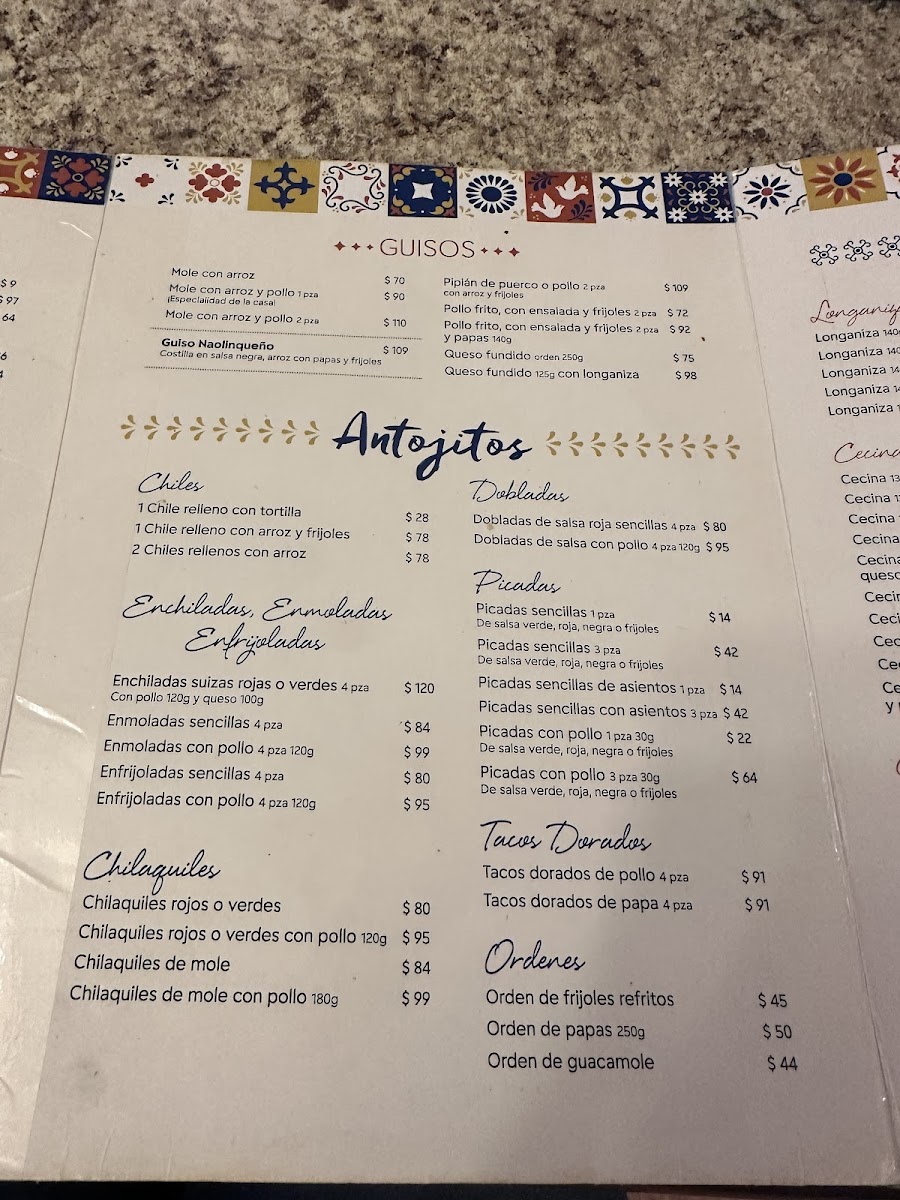 GUISOS
Mole con arroz $ 70
Mole con arroz y pollo 1 pza $ 90
¡Especialidad de la casa!
Mole con arroz y pollo 2 pza $ 110
Guiso Naolinqueño $ 109
Costilla en salsa negra, arroz con papas y frijoles
Pipián de puerco o pollo 2 pza $ 109
con arroz y frijoles
Pollo frito, con ensalada y frijoles 2 pza $ 72
Pollo frito, con ensalada y frijoles 2 pza $ 92
y papas 140g
Queso fundido orden 250g $ 75
Queso fundido 125g con longaniza $ 98
Antojitos
Chiles
1 Chile relleno con tortilla $ 28
1 Chile relleno con arroz y frijoles $ 78
2 Chiles rellenos con arroz $ 78
Enchiladas, Enmoladas
Enfrijoladas
Enchiladas suizas rojas o verdes 4 pza $ 120
Con pollo 120g y queso 100g
Enmoladas sencillas 4 pza $ 84
Enmoladas con pollo 4 pza 120g $ 99
Enfrijoladas sencillas 4 pza $ 80
Enfrijoladas con pollo 4 pza 120g $ 95
Chilaquiles
Chilaquiles rojos o verdes $ 80
Chilaquiles rojos o verdes con pollo 120g $ 95
Chilaquiles de mole $ 84
Chilaquiles de mole con pollo 180g $ 99
Dobladas
Dobladas de salsa roja sencillas 4 pza $ 80
Dobladas de salsa con pollo 4 pza 120g $ 95
Picadas
Picadas sencillas 1 pza $ 14
De salsa verde, roja, negra o frijoles
Picadas sencillas 3 pza $ 42
De salsa verde, roja, negra o frijoles
Picadas sencillas de asientos 1 pza $ 14
Picadas sencillas con asientos 3 pza $ 42
Picadas con pollo 1 pza 30g $ 22
De salsa verde, roja, negra o frijoles
Picadas con pollo 3 pza 30g $ 64
De salsa verde, roja, negra o frijoles
Tacos Dorados
Tacos dorados de pollo 4 pza $ 91
Tacos dorados de papa 4 pza $ 91
Ordenes
Orden de frijoles refritos $ 45
Orden de papas 250g $ 50
Orden de guacamole $ 44
$ 9
$ 97
64
Longaniza
Longaniza
Longaniza
Longaniza
Longaniza
Cecina
Cecina
Cecina
Cecina
Cecina